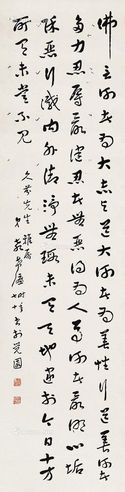 佛言何者為大志與道大何者為善惟行道善何者
多力忍辱最健忍者無怨必為人尊何者最明心垢
除惡行滅內外清淨無瑕未有天地逮於今日十方
所有未嘗不見
先生雅屬